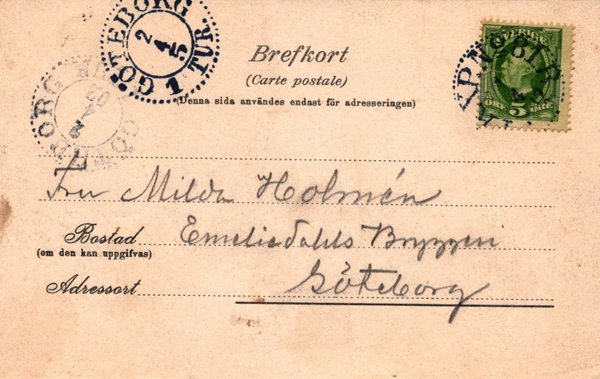 GÖTEBORG
2
4
5
1 TUR
SVERIGE
ÖRE 5 ÖRE
Brefkort
(Carte postale)
(Denna sida användes endast för adresseringen)
Fru Milda Holmén
Bostad
(om den kan uppgifvas)
Emeliedahls Bryggeri
Adressort
Göteborg